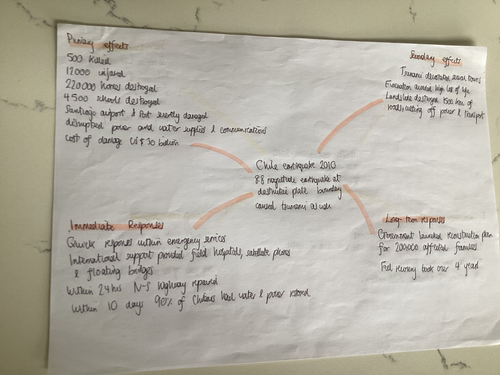 Primary effects
500 killed
12000 injured
220000 homes destroyed
4500 schools destroyed
Santiago airport & Port severely damaged
disrupted power and water supplies & communications
cost of damage US$ 30 billion
Secondary effects
Tsunami devastated several towns
Evacuation avoided high loss of life
Landslide destroyed 1500 km of
roads, cutting off power & transport
Chile earthquake 2010
8.8 magnitude earthquake at
destructive plate boundary
caused tsunami as well
Immediate Responses
Quick response within emergency services
International support provided field hospitals, satellite phones
& floating bridges
Within 24hrs N-S highway repaired
Within 10 days 90% of Chileans had water & power restored
Long-term responses
Government launched reconstruction plan
for 200,000 affected families
Full recovery took over 4 years